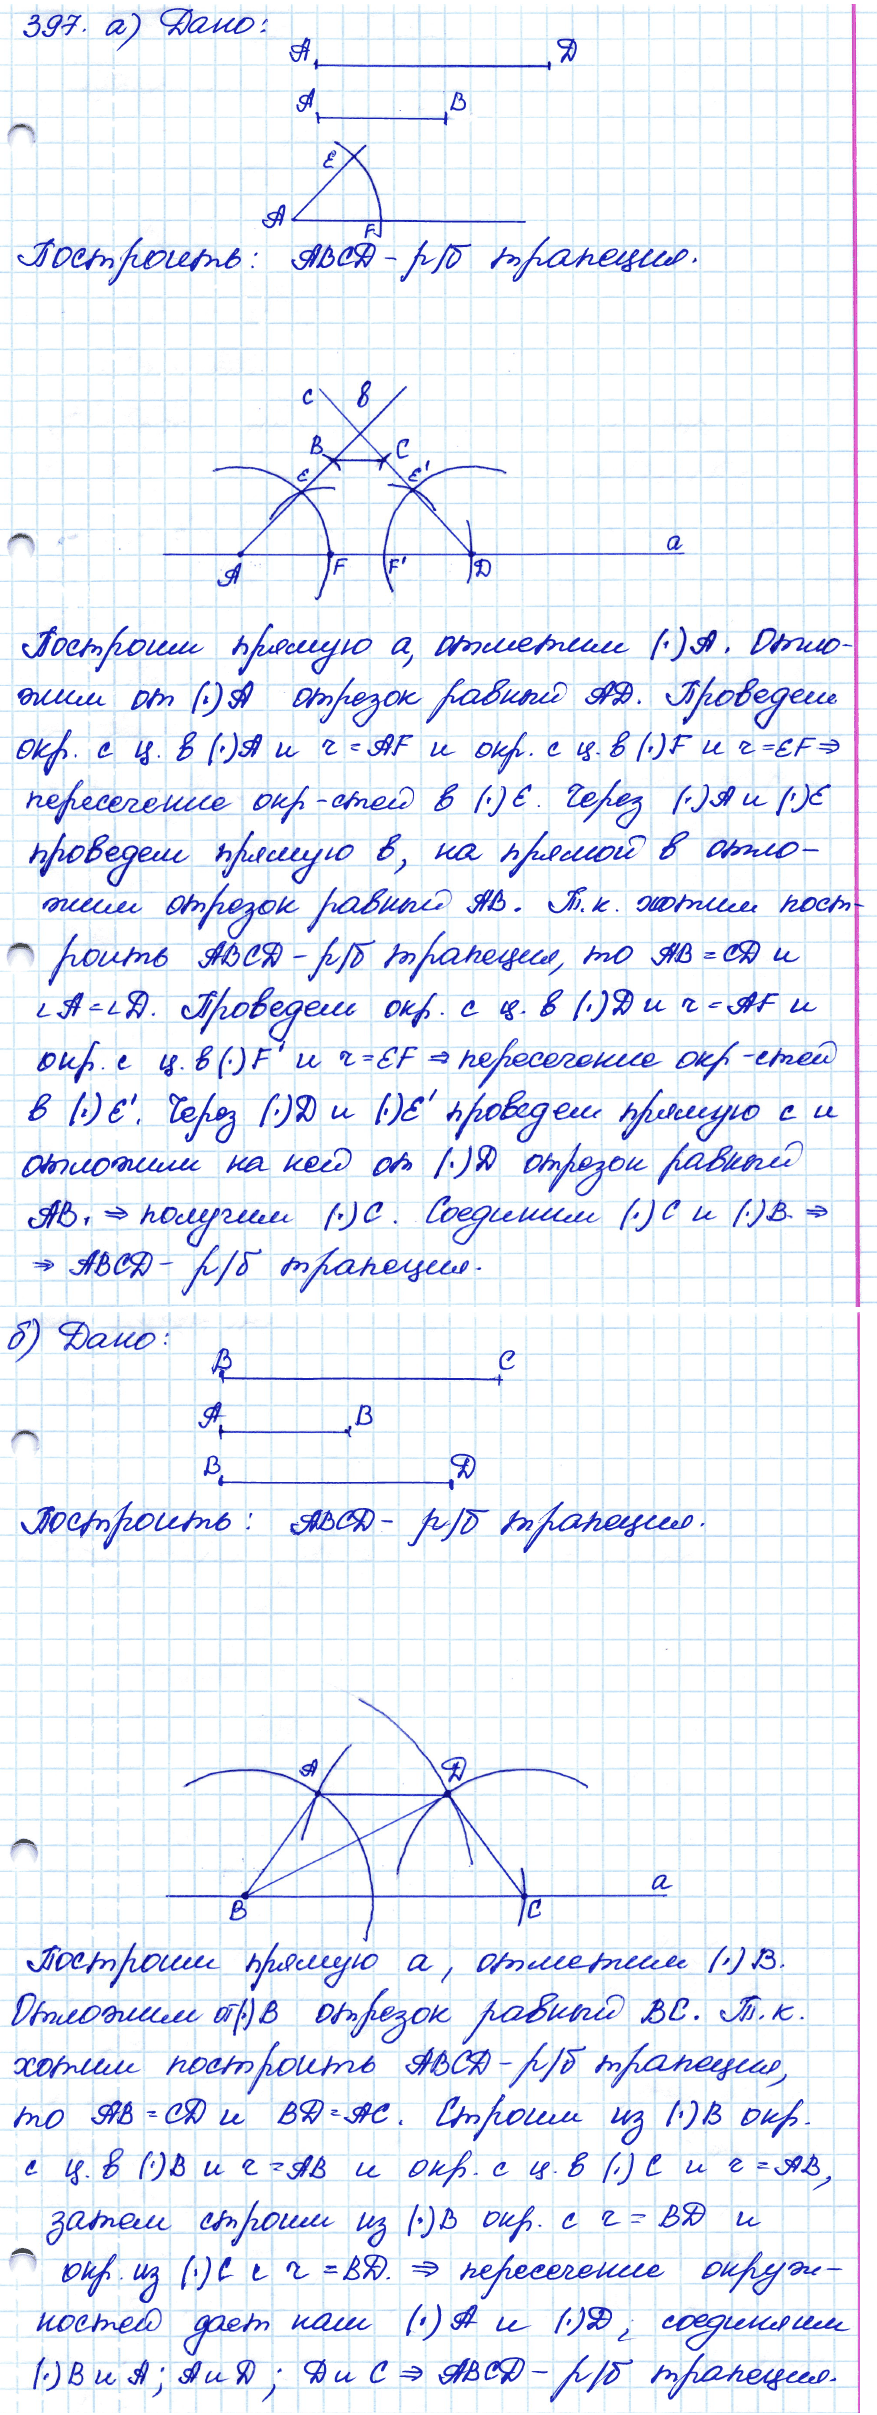 397. а) Дано:
A D
A B
E
A F
Построить: ABCD - р/б трапеция.
c b
B C
E E'
a
A F F' D
Построим прямую a, отметим (·)A. Отло-
жим от (·)A отрезок равный AD. Проведем
окр. с ц. в (·)A и r = AF и окр. с ц. в (·)F и r = EF ⇒
пересечение окр-стей в (·)E. Через (·)A и (·)E
проведем прямую b, на прямой b отло-
жим отрезок равный AB. Т.к. хотим пост-
роить ABCD - р/б трапеция, то AB = CD и
∠A = ∠D. Проведем окр. с ц. в (·)D и r = AF и
окр. с ц. в (·)F' и r = EF ⇒ пересечение окр-стей
в (·)E'. Через (·)D и (·)E' проведем прямую c и
отложим на ней от (·)D отрезок равный
AB. ⇒ получим (·)C. Соединим (·)C и (·)B. ⇒
⇒ ABCD - р/б трапеция.
б) Дано:
B C
A B
B D
Построить: ABCD - р/б трапеция.
A D
a
B C
Построим прямую a, отметим (·)B.
Отложим от(·)B отрезок равный BC. Т.к.
хотим построить ABCD - р/б трапеция,
то AB = CD и BD = AC. Строим из (·)B окр.
с ц. в (·)B и r = AB и окр. с ц. в (·)C и r = AB,
затем строим из (·)B окр. с r = BD и
окр. из (·)C с r = BD. ⇒ пересечение окруж-
ностей дает нам (·)A и (·)D; соединяем
(·)B и A; A и D; D и C ⇒ ABCD - р/б трапеция.